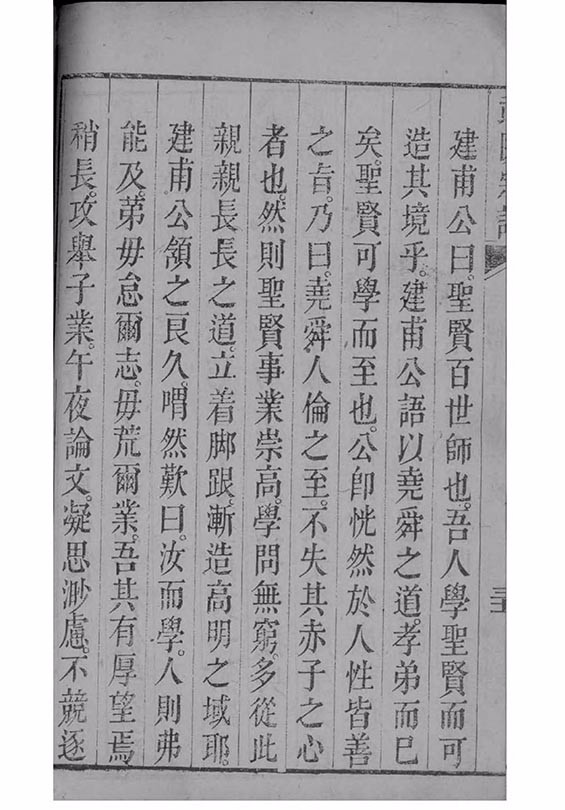 建甫公曰。聖賢百世師也。吾人學聖賢而可
造其境乎。建甫公語以堯舜之道。孝弟而已
矣。聖賢可學而至也。公卽恍然於人性皆善
之旨。乃曰。堯舜。人倫之至。不失其赤子之心
者也。然則聖賢事業崇高。學問無窮。多從此
親親長長之道。立着脚跟。漸造高明之域耶。
建甫公頷之良久。喟然歎曰。汝而學。人則弗
能及。第毋怠爾志。毋荒爾業。吾其有厚望焉
稍長。攻舉子業。午夜論文。凝思渺慮。不競逐